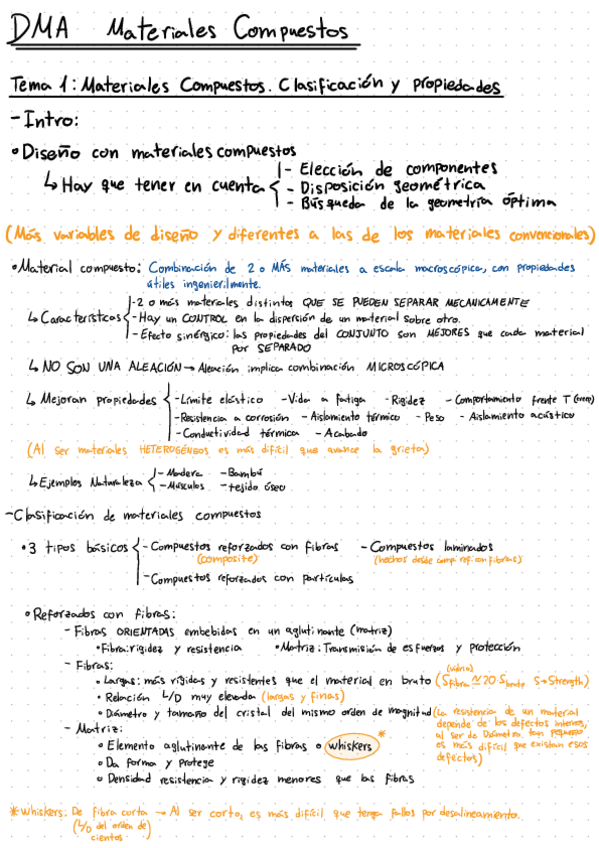 DMA Materiales Compuestos
Tema 1: Materiales Compuestos. Clasificación y propiedades
- Intro:
• Diseño con materiales compuestos
↳ Hay que tener en cuenta { - Elección de componentes
- Disposición geométrica
- Búsqueda de la geometría óptima
(Más variables de diseño y diferentes a las de los materiales convencionales)
• Material compuesto: Combinación de 2 o MÁS materiales a escala macroscópica, con propiedades
útiles ingenierilmente.
- 2 o más materiales distintos QUE SE PUEDEN SEPARAR MECANICAMENTE
↳ Características { - Hay un CONTROL en la dispersión de un material sobre otro.
- Efecto sinérgico: las propiedades del CONJUNTO son MEJORES que cada material
por SEPARADO
↳ NO SON UNA ALEACIÓN → Aleación implica combinación MICROSCÓPICA
↳ Mejoran propiedades { - Límite elástico - Vida a fatiga - Rigidez - Comportamiento frente T
- Resistencia a corrosión - Aislamiento térmico - Peso - Aislamiento acústico
- Conductividad térmica - Acabado
(Al ser materiales HETEROGÉNEOS es más difícil que avance la grieta)
↳ Ejemplos Naturaleza { - Madera - Bambú
- Músculos - tejido óseo
- Clasificación de materiales compuestos
• 3 tipos básicos { - Compuestos reforzados con fibras - Compuestos laminados
(composite) (hechos desde comp. ref. con fibras)
- Compuestos reforzados con partículas
• Reforzados con fibras:
- Fibras ORIENTADAS embebidas en un aglutinante (matriz)
• Fibra: rigidez y resistencia • Matriz: Transmisión de esfuerzos y protección
- Fibras:
(vidrio)
• Largas: más rígidas y resistentes que el material en bruto (S fibra ≈ 20 S bruto S → Strength)
• Relación L/D muy elevada (largas y finas)
• Diámetro y tamaño del cristal del mismo orden de magnitud (La resistencia de un material
depende de los defectos internos,
al ser de Diámetro tan pequeño
es más difícil que existan esos
defectos)
- Matriz:
• Elemento aglutinante de las fibras o whiskers *
• Da forma y protege
• Densidad resistencia y rigidez menores que las fibras
* Whiskers: De fibra corta → Al ser corto, es más difícil que tenga fallos por desalineamiento.
(L/D del orden de
cientos)